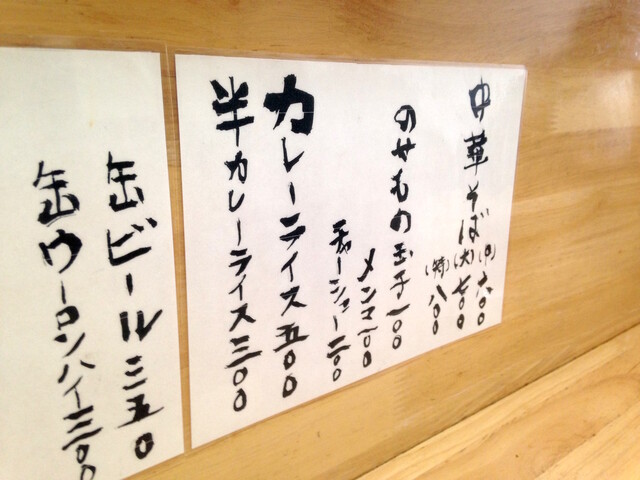 中華そば(中)六〇〇
(大)七〇〇
(特)八〇〇
のせもの玉子一〇〇
メンマ一〇〇
チャーシュー二〇〇
カレーライス五〇〇
半カレーライス三〇〇
缶ビール三五〇
缶ウーロンハイ三〇〇